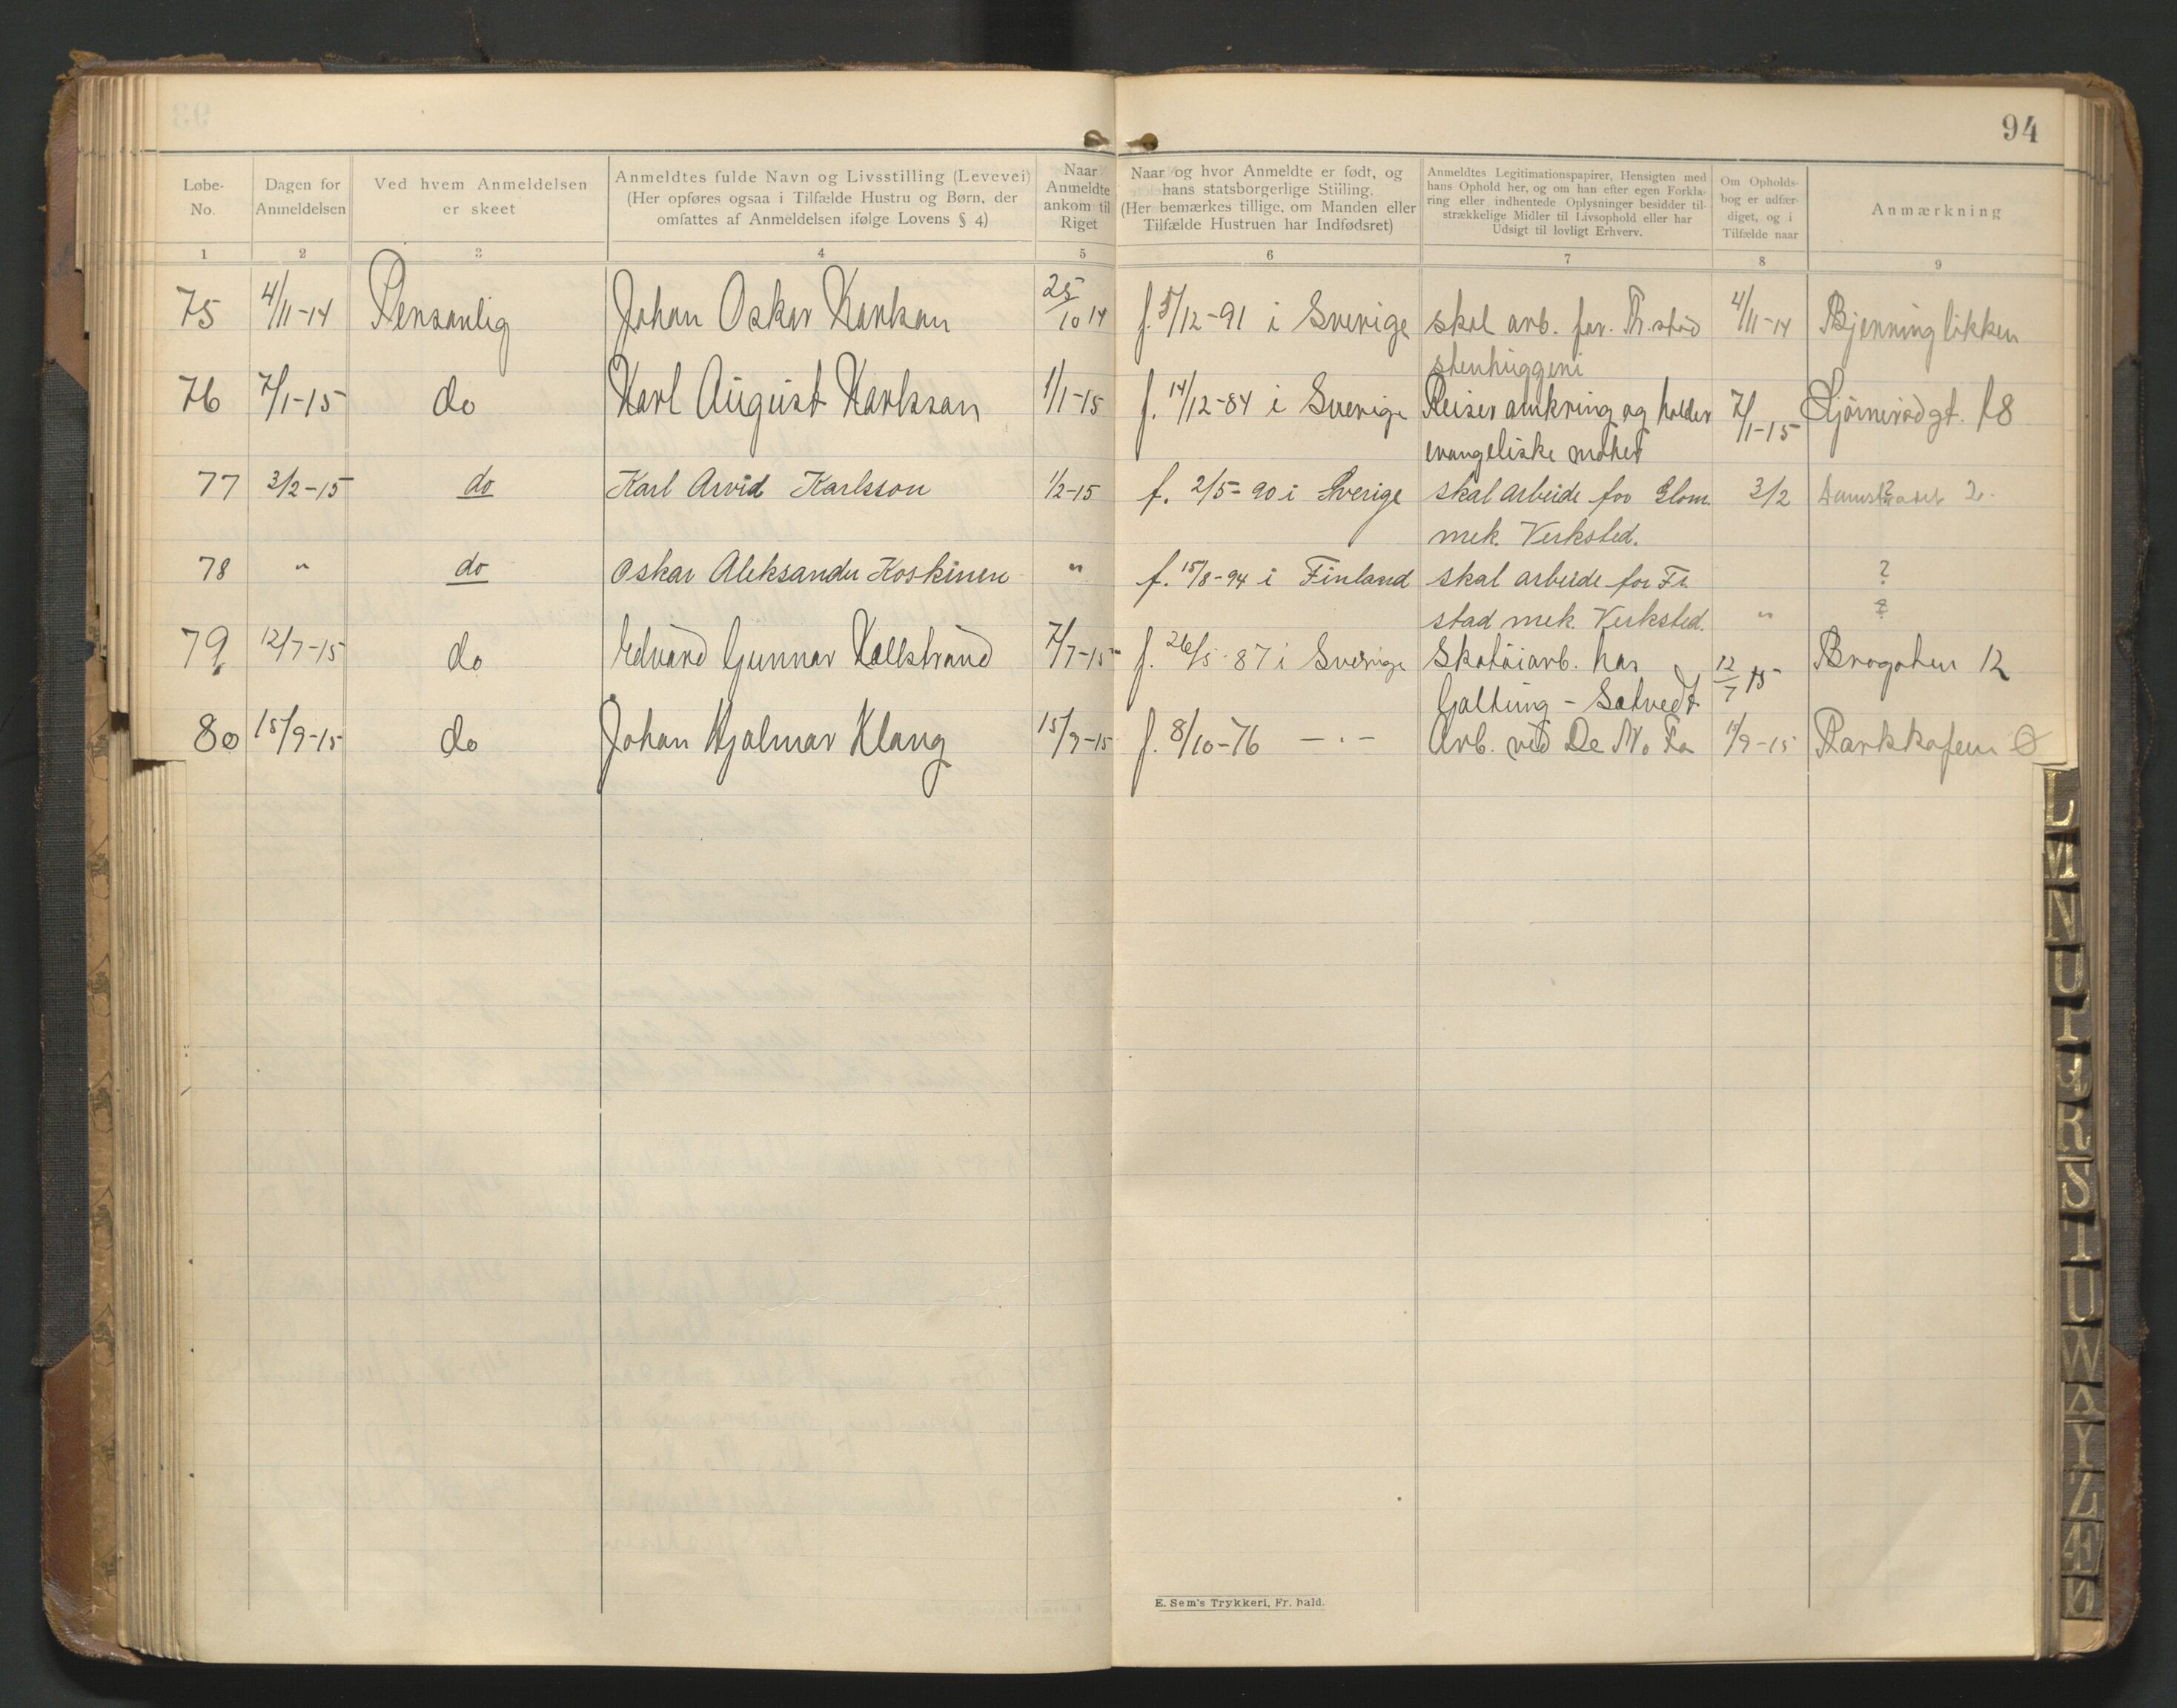 94
Løbe-
No.
Dagen for
Anmeldelsen
Ved hvem Anmeldelsen
er skeet
Anmeldtes fulde Navn og Livsstilling (Levevei)
(Her opføres ogsaa i Tilfælde Hustru og Børn, der
omfattes af Anmeldelsen ifølge Lovens § 4)
Naar
Anmeldte
ankom til
Riget
Naar og hvor Anmeldte er født, og
hans statsborgerlige Stiiling.
(Her bemærkes tillige, om Manden eller
Tilfælde Hustruen har Indfødsret)
Anmeldtes Legitimationspapirer, Hensigten med
hans Ophold her, og om han efter egen Forkla-
ring eller indhentede Oplysninger besidder til-
strækkelige Midler til Livsophold eller har
Udsigt til lovligt Erhverv.
Om Opholds-
bog er udfær-
diget, og i
Tilfælde naar
Anmærkning
1 2 3 4 5 6 7 8 9
75 4/11-14 Personlig Johan Oskar Karlson 25/10 14 f. 5/12-91 i Sverige skal arb. for. Fr.stad 4/11-14 Bjenningløkken
stenhuggeri
76 7/1-15 do Karl August Karlsson 1/1-15 f. 14/12-84 i Sverige Reiser omkring og holder 7/1-15 18
evangeliske møher
77 3/2-15 do Karl Arvid Karlsson 1/2-15 f. 2/5-90 i Sverige skal arbeide for Glom. 3/2 2.
mek. Verksted.
78 " do Oskar Aleksander Koskinen " f. 15/8-94 i Finland skal arbeide for Fr. ?
stad mek. Verksted. "
79 12/7-15 do Edvard Gunnar Kallstrand 7/7-15 f. 26/5-87 i Sverige Skotøiarb. hos 12/7 15 Brogaten 12
Galtung - Sætvedt
80 15/9-15 do Johan Hjalmar Klang 15/9-15 f. 8/10-76 - . - Arb. ved De No Fa /9-15 Parkkafeen Ø
E. Sem's Trykkeri, Fr. hald.
L
M
N
O
P
Q
R
S
T
U
W
A
Y
Z
Æ
Ø